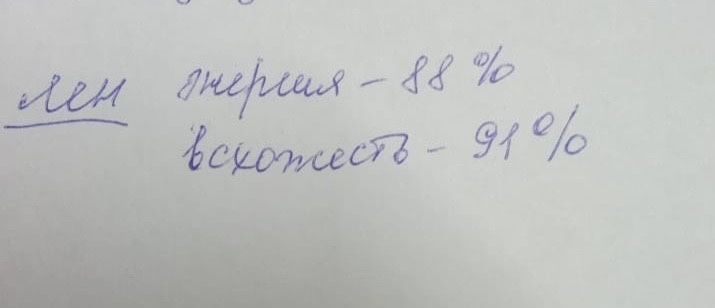 лен энергия - 88 %
всхожесть - 91 %